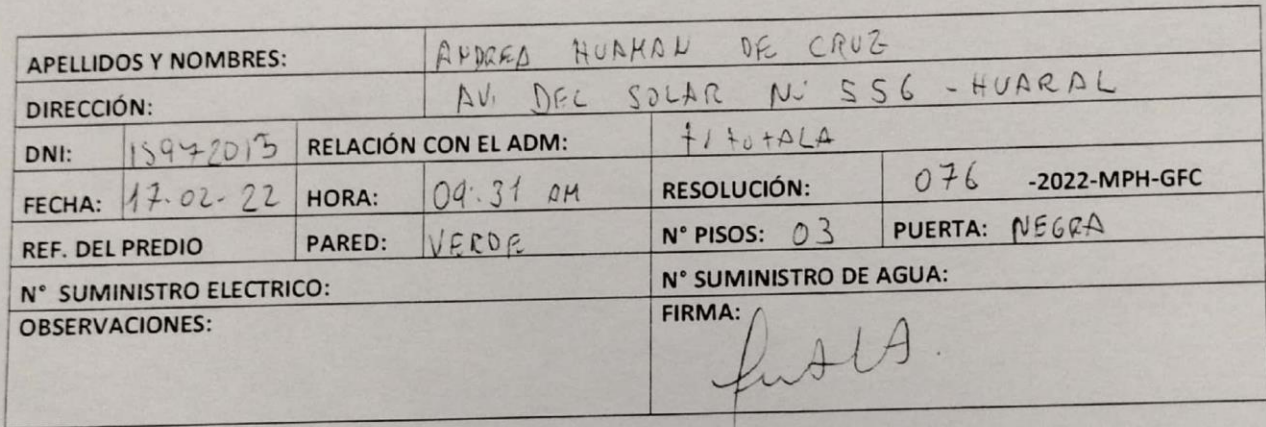 APELLIDOS Y NOMBRES: ANDREA HUAMAN DE CRUZ
DIRECCIÓN: AV. DEL SOLAR Nº 556 - HUARAL
DNI: 15972013 RELACIÓN CON EL ADM: titutALA
FECHA: 17-02-22 HORA: 09:31 AM RESOLUCIÓN: 076 -2022-MPH-GFC
REF. DEL PREDIO PARED: VERDE N° PISOS: 03 PUERTA: NEGRA
N° SUMINISTRO ELECTRICO: N° SUMINISTRO DE AGUA:
OBSERVACIONES: FIRMA: